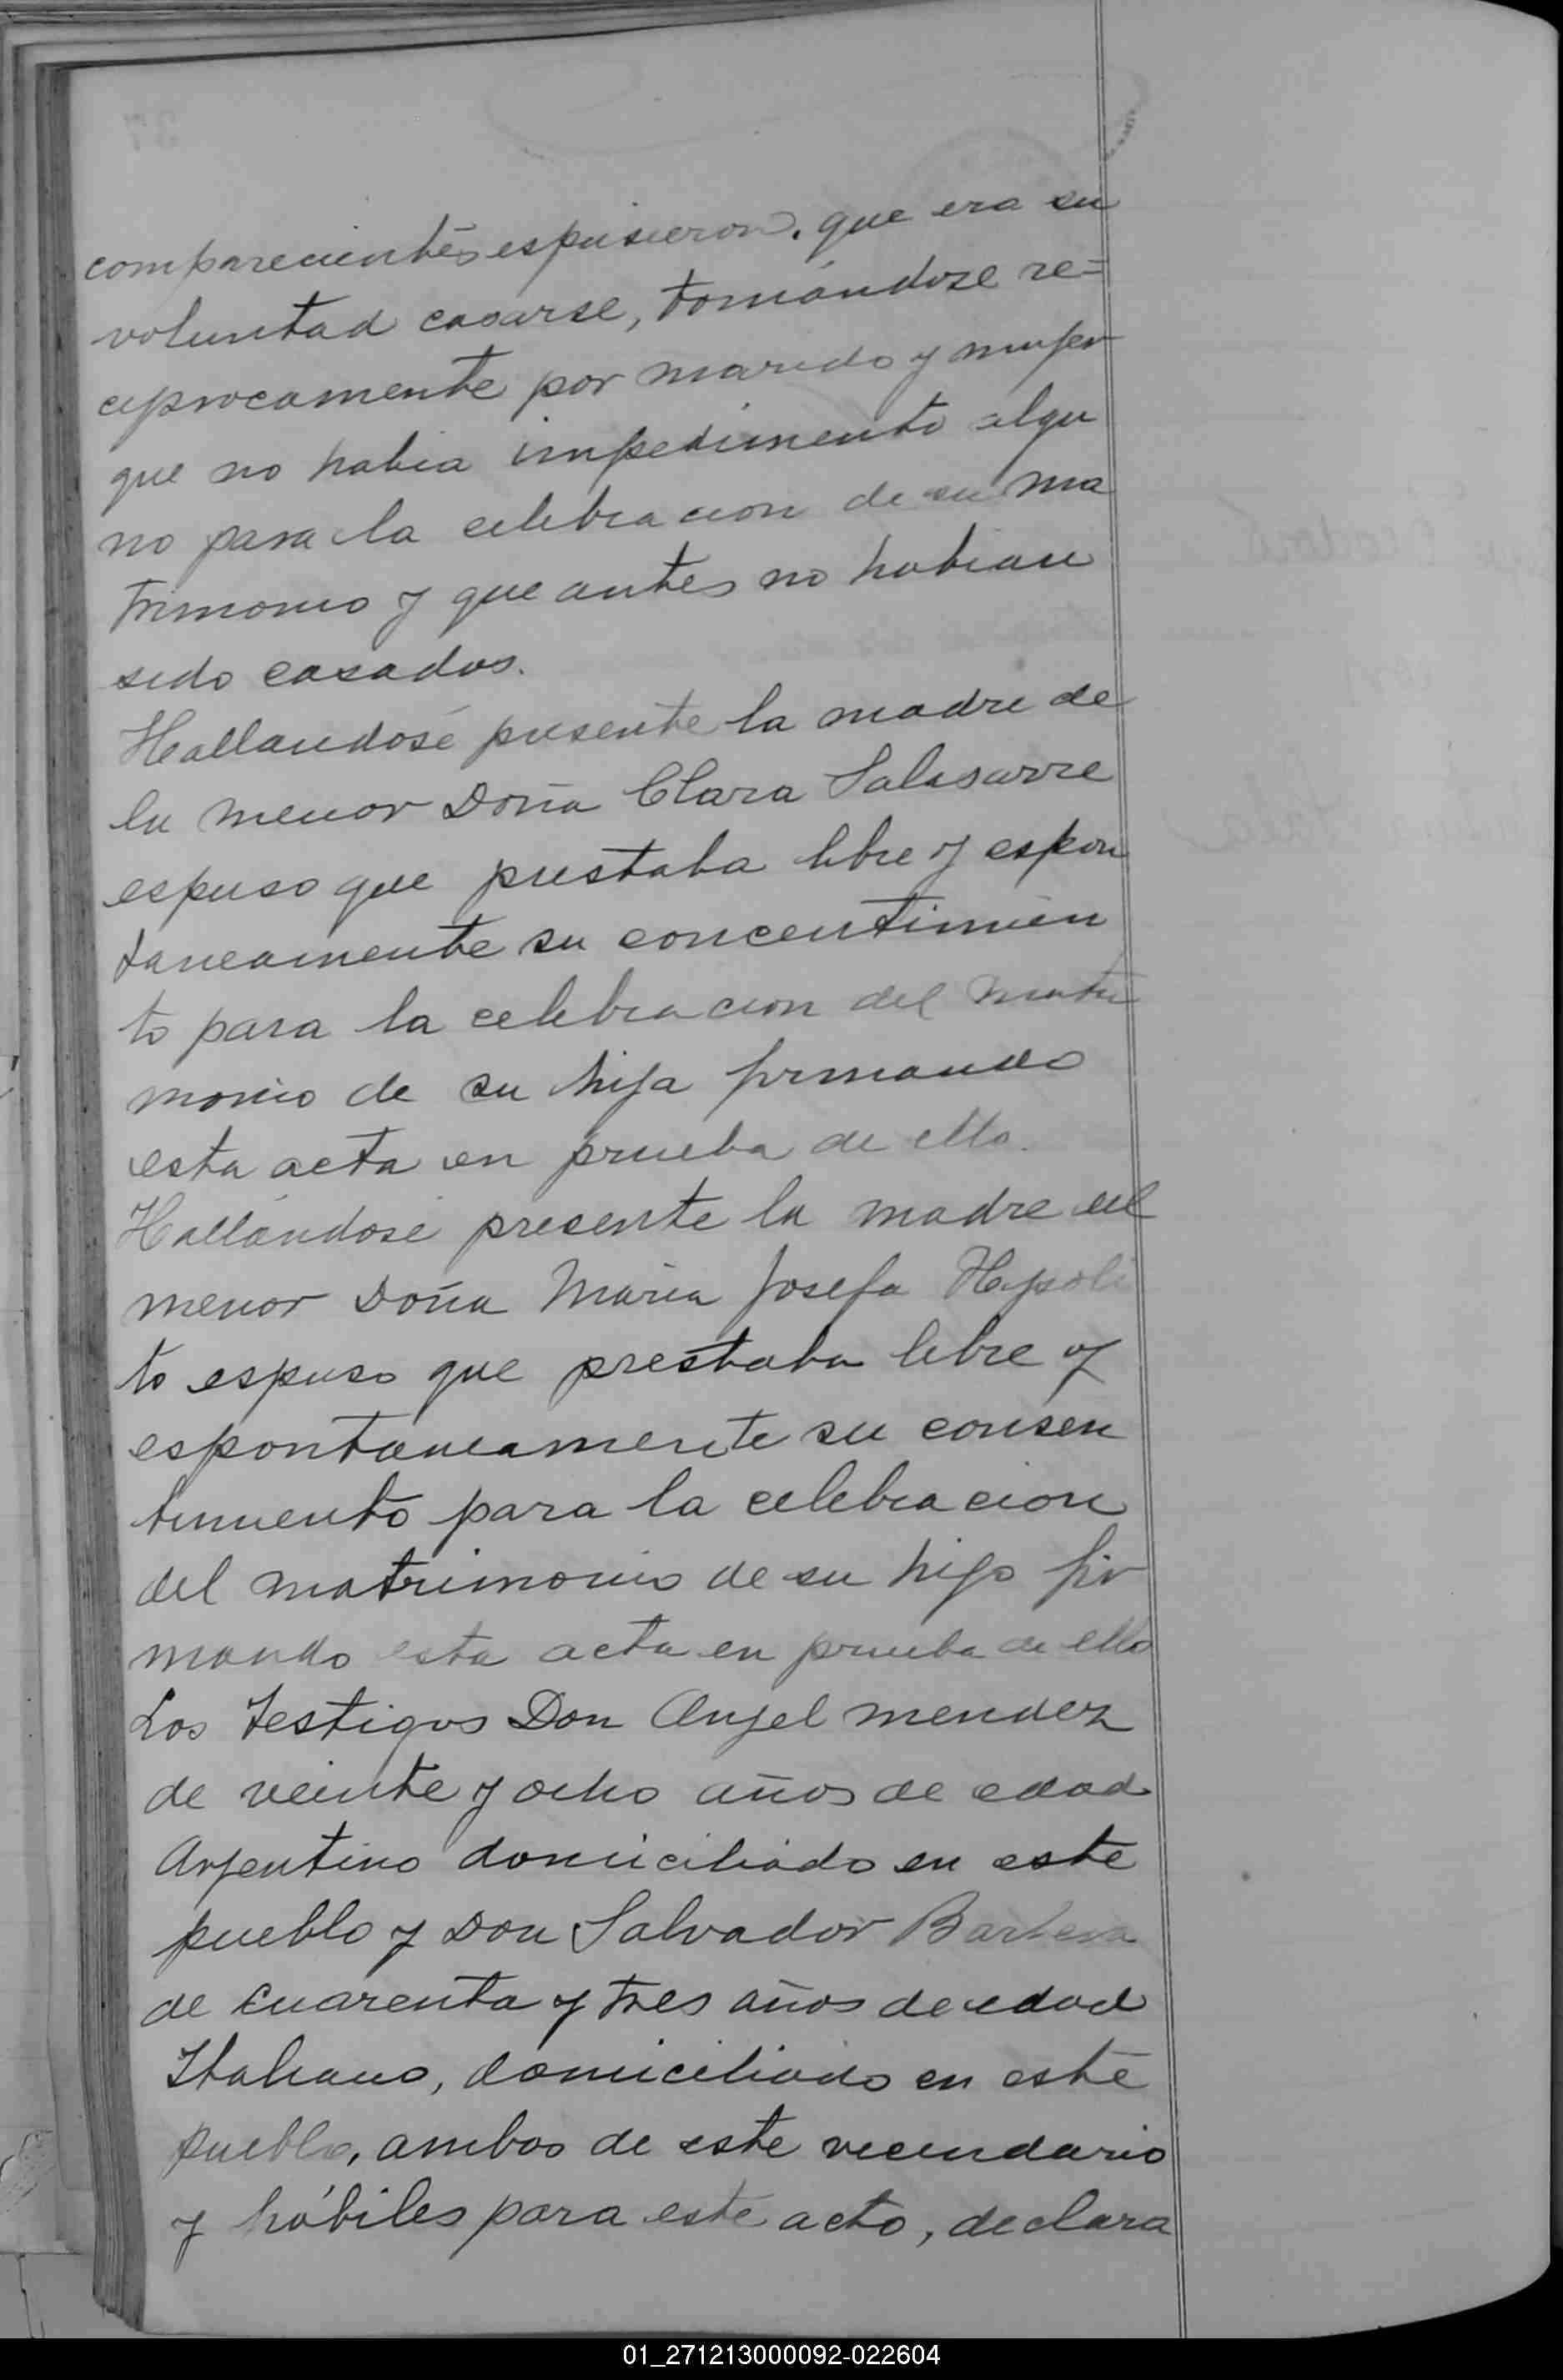 comparecientes espusieron. que era su
voluntad casarse, tomándose re=
ciprocamente por marido y mujer
que no habia impedimento algu
no para la celebracion de su ma
trimonio y que antes no habian
sido casados.
Hallandosé presente la madre de
la menor Doña Clara Salasarre
espuso que prestaba libre y espon
taneamente su concentimien
to para la celebracion del matri
monio de su hija firmando
esta acta en prueba de ello.
Hallándose presente la madre del
menor Doña Maria Josefa Hypoli
to espuso que prestaba libre y
espontaneamente su consen
timiento para la celebracion
del matrimonio de su hijo fir
mando esta acta en prueba de ello
Los Testigos Don Angel mendez
de veinte y ocho años de edad
Argentino domiciliado en este
pueblo y Don Salvador Barbera
de cuarenta y tres años de edad
Italiano, domiciliado en este
pueblo, ambos de este vecindario
y hábiles para este acto, declara
01_271213000092-022604